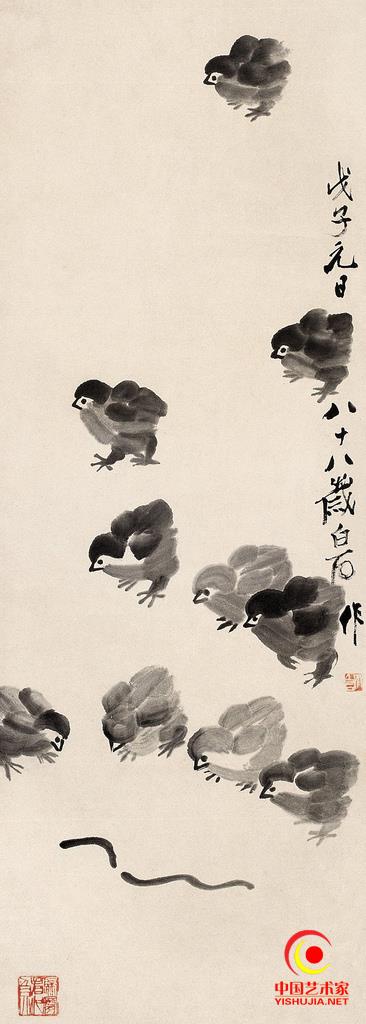 戊子元日
八十八歲白石作
中国艺术家
YISHUJIA.NET